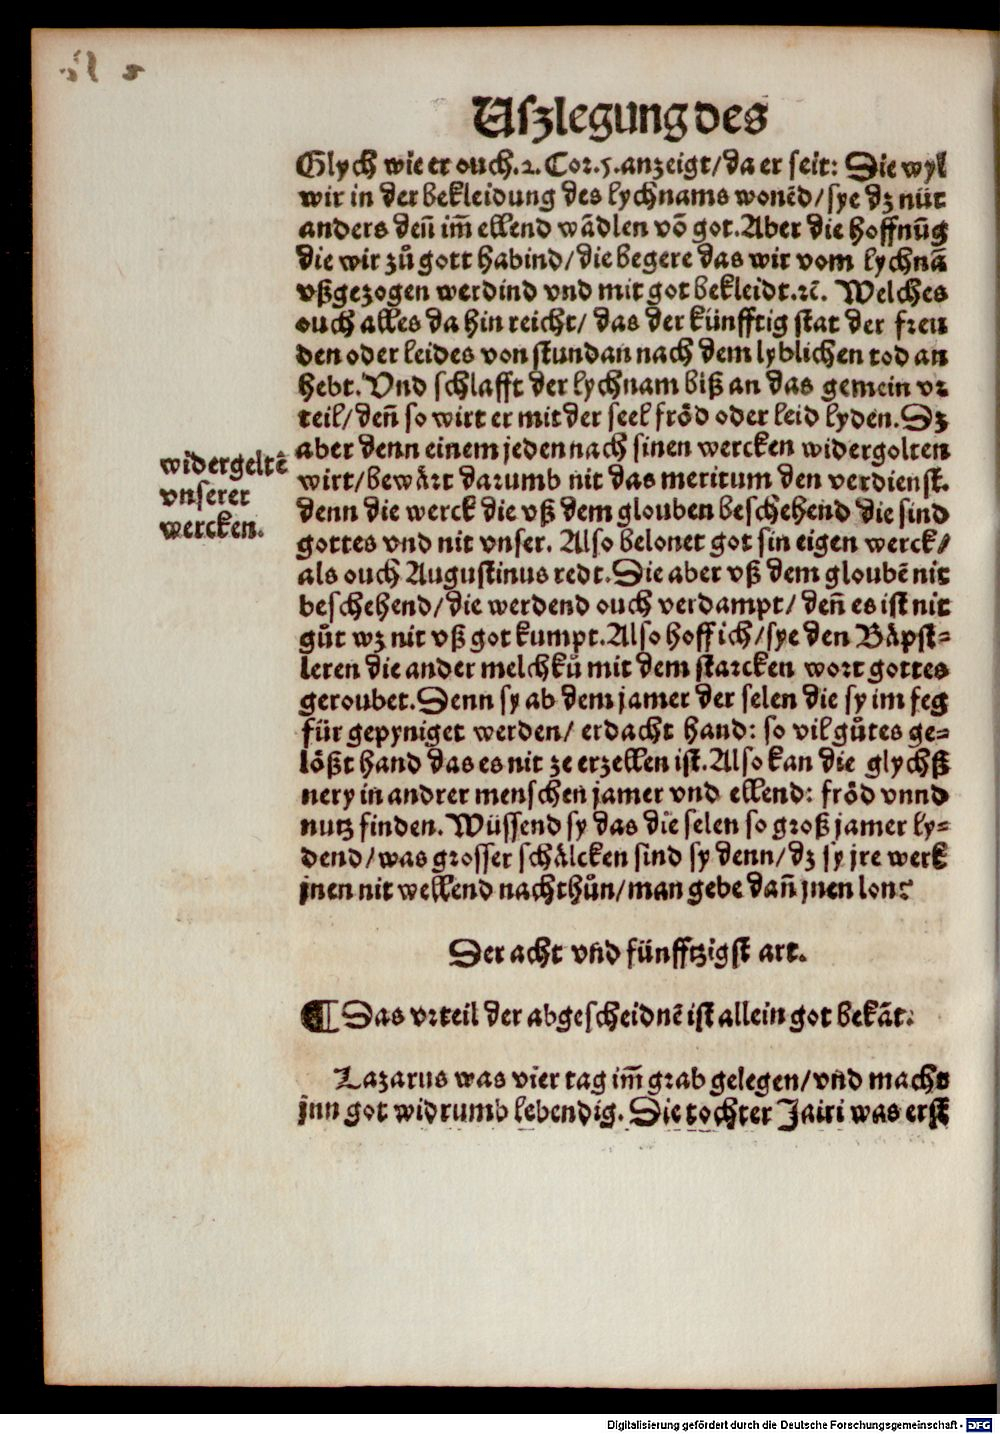 Uſzlegung des
Glych wie er ouch.2. Cor.5.anzeigt/da er ſeit: Die wyl
wir in der bekleidung des lychnams wonẽd/ſye dz nüt
anders deñ im̃ ellend wãdlen võ got. Aber die hoffnũg
die wir zů gott habind/die begere das wir vom lychnã
vßgezogen werdind vnd mit got bekleidt.ꝛc̃. Welches
ouch alles da hin reicht/ das der künfftig ſtat der freu
den oder leides von ſtund an nach dem lyblichen tod an
hebt. Vnd ſchlafft der lychnam biß an das gemein vr
teil/deñ ſo wirt er mit der ſeel fröd oder leid lyden. Dz
aber denn einem jeden nach ſinen wercken widergolten
wirt/bewärt darumb nit das meritum den verdienſt.
denn die werck die vß dem glouben beſchehend die ſind
gottes vnd nit vnſer. Alſo belonet got ſin eigen werck/
als ouch Auguſtinus redt. Die aber vß dem gloubẽ nit
beſchehend/die werdend ouch verdampt/ deñ es iſt nit
gůt wz nit vß got kumpt. Alſo hoff ich/ſye den Bäpſt-
leren die ander melchků mit dem ſtarcken wort gottes
geroubet. Denn ſy ab dem jamer der ſelen die ſy im feg
für gepyniget werden/ erdacht hand: ſo vil gůtes ge-
lößt hand das es nit ze erzellen iſt. Alſo kan die glychß
nery in andrer menſchen jamer vnd ellend: fröd vnnd
nutz finden. Wüſſend ſy das die ſelen ſo groß jamer ly-
dend/was groſſer ſchälcken ſind ſy denn/dz ſy jre werk
jnen nit wellend nachthůn/man gebe dañ jnen lon?
widergeltẽ
vnſerer
wercken.
Der acht vñd fünfftzigſt art.
¶ Das vrteil der abgeſcheidnẽ iſt allein got bekãt.
Lazarus was vier tag im̃ grab gelegen/vñd macht
jnn got widrumb lebendig. Die tochter Jairi was erſt
Digitalisierung gefördert durch die Deutsche Forschungsgemeinschaft - DFG